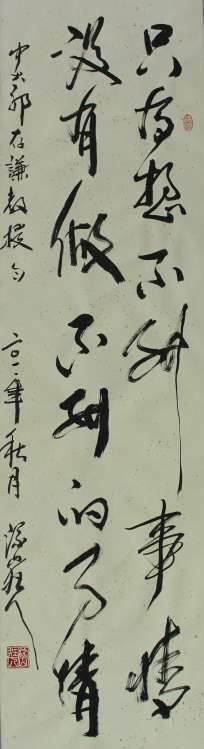 只有想不到事情
没有做不到的事情
中大郭在謙教授句
二〇一二年秋月